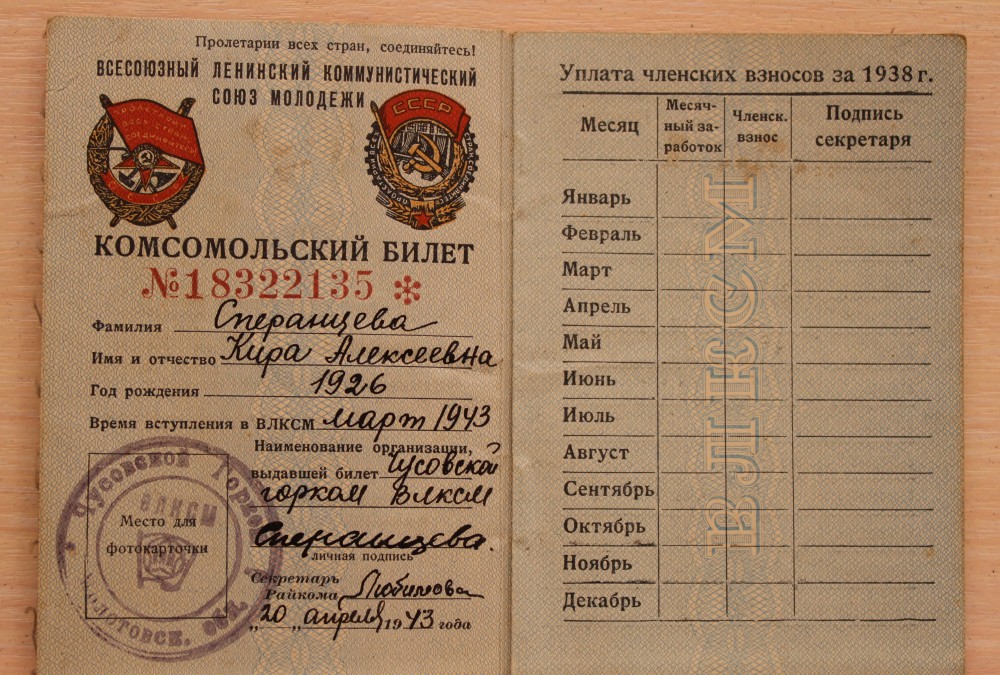 Пролетарии всех стран, соединяйтесь!
ВСЕСОЮЗНЫЙ ЛЕНИНСКИЙ КОММУНИСТИЧЕСКИЙ
СОЮЗ МОЛОДЕЖИ
СССР
КОМСОМОЛЬСКИЙ БИЛЕТ
№18322135 *
Фамилия Сперанцева
Имя и отчество Кира Алексеевна
Год рождения 1926
Время вступления в ВЛКСМ март 1943
Наименование организации,
выдавшей билет Чусовской
горком ВЛКСМ
Сперанцева.
личная подпись
Секретарь
Райкома Любимова
"20" апреля 1943 года
Место для
фотокарточки
Чусовской Горком
ВЛКСМ
Молотовск. обл.
Уплата членских взносов за 1938 г.
Месяц
Месяч-
ный за-
работок
Членск.
взнос
Подпись
секретаря
Январь
Февраль
Март
Апрель
Май
Июнь
Июль
Август
Сентябрь
Октябрь
Ноябрь
Декабрь
ВЛКСМ